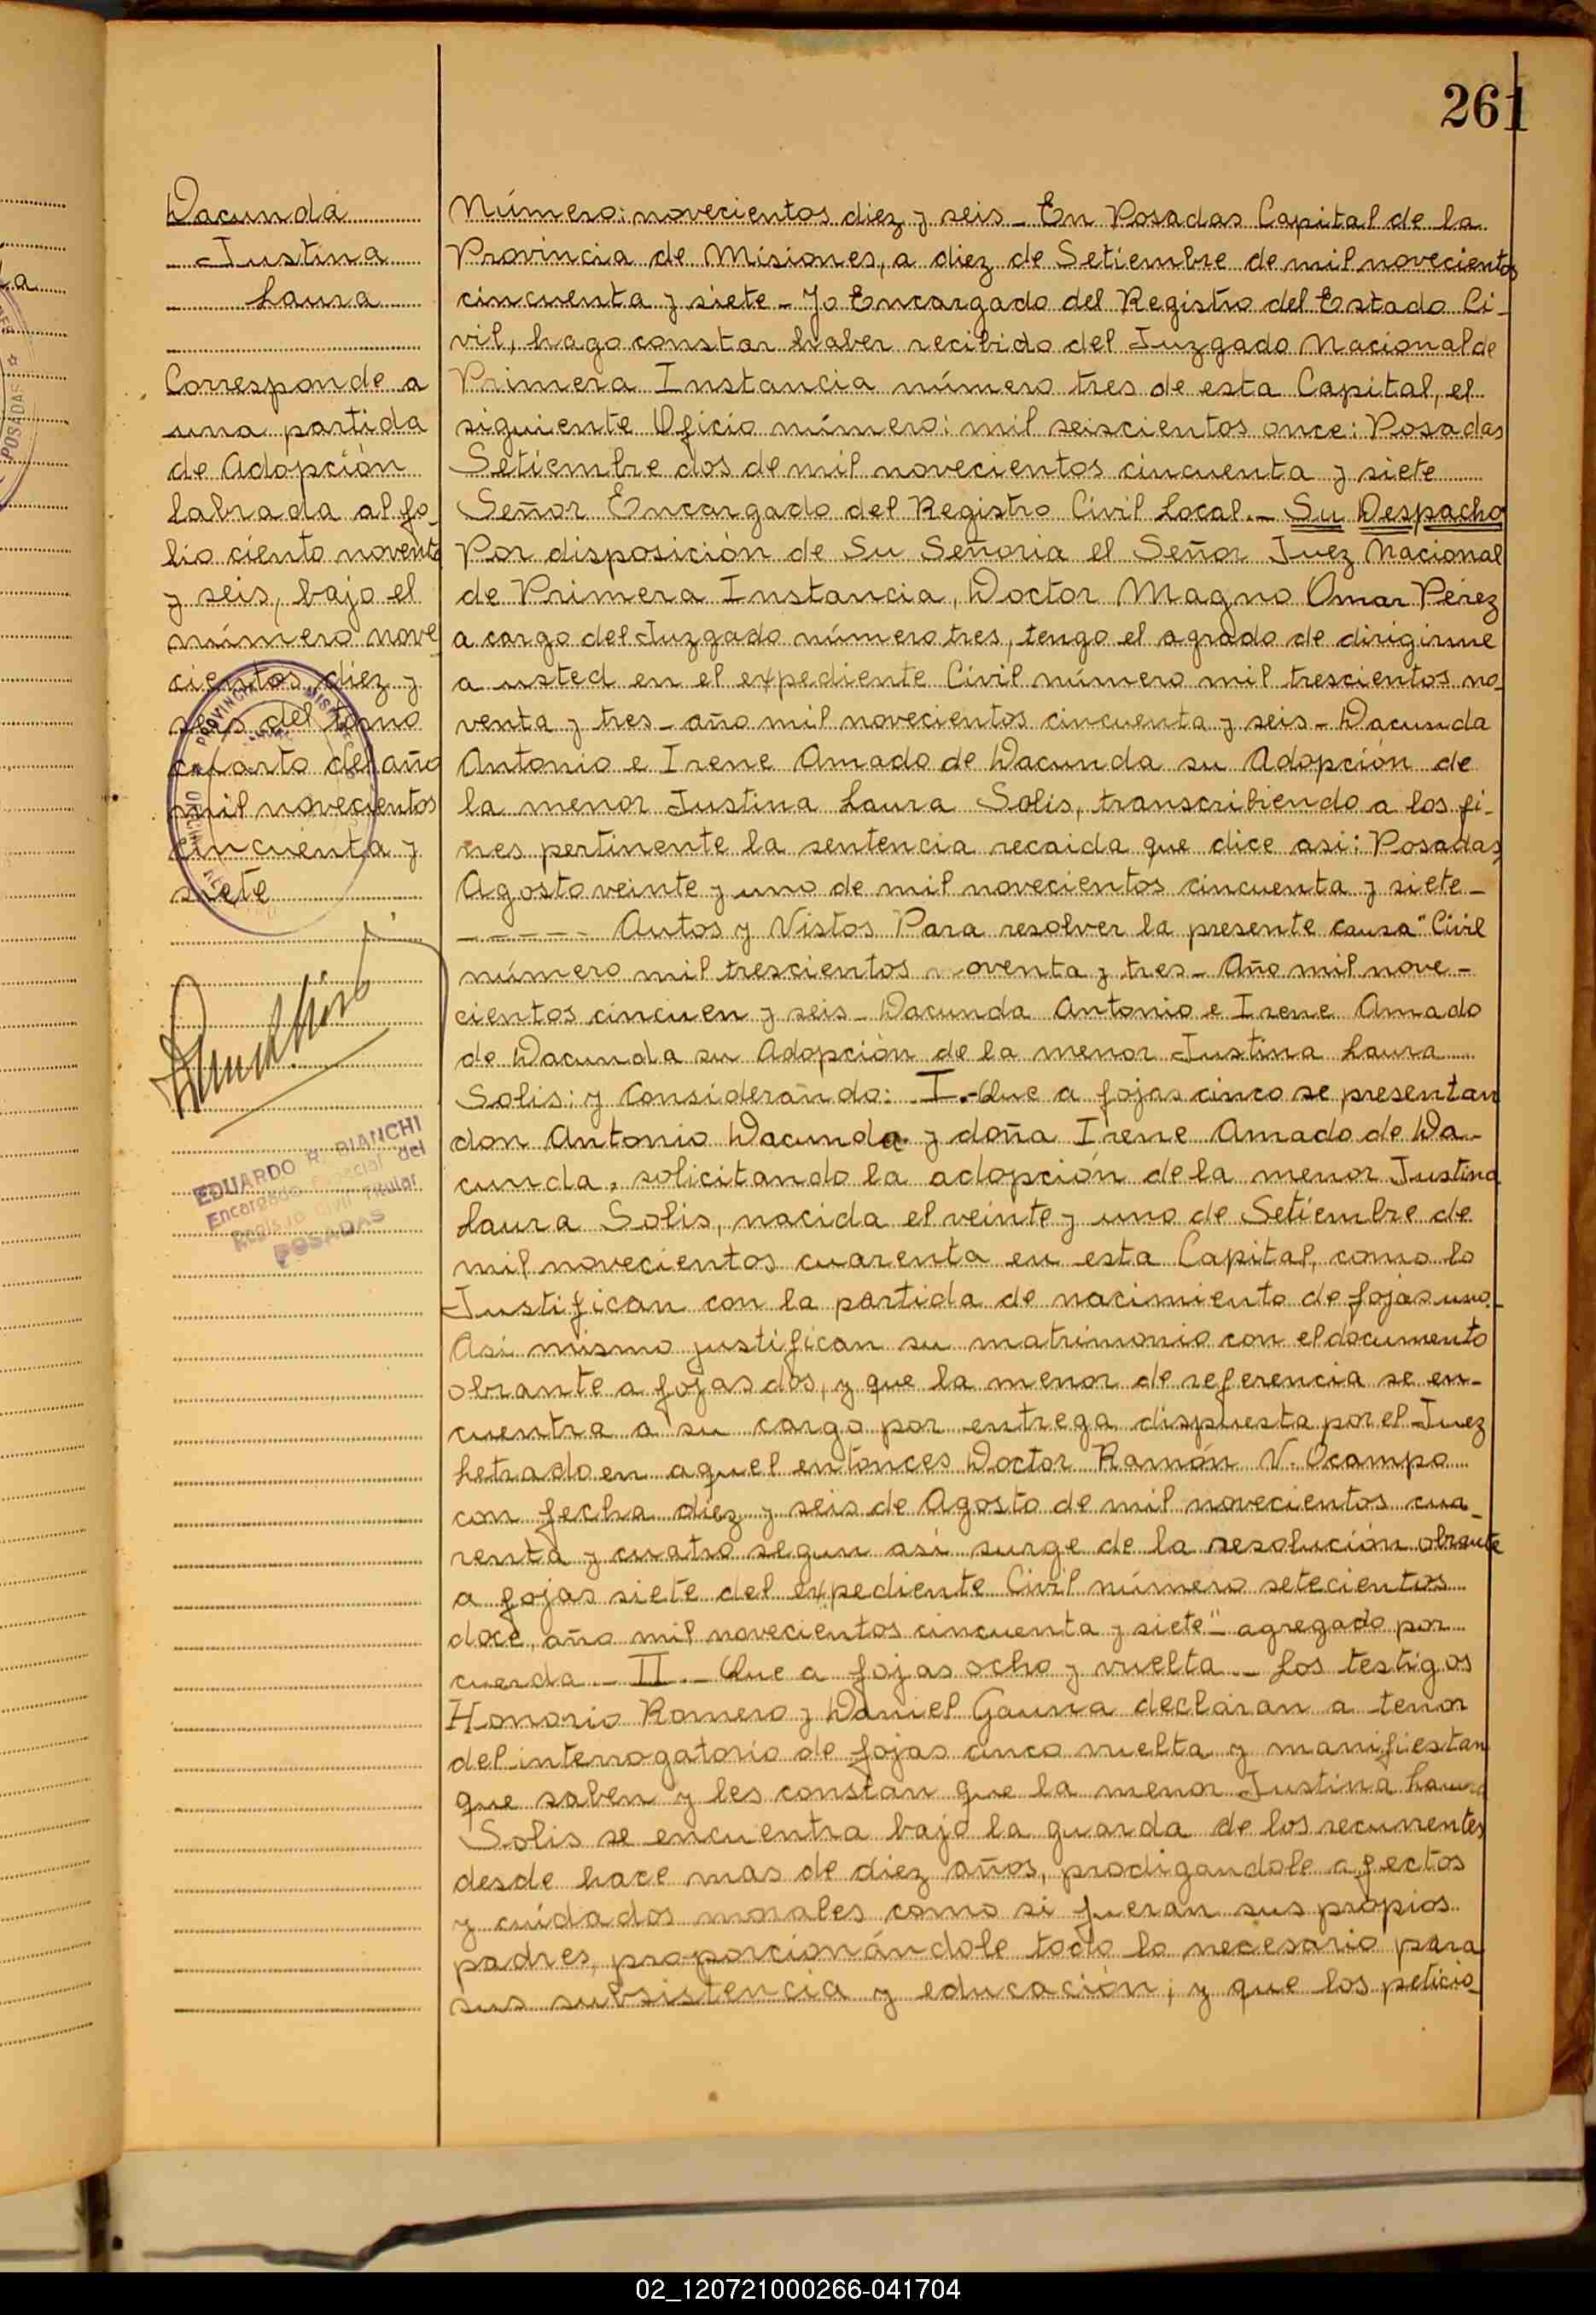 261
Dacunda
Justina
Laura
Corresponde a
una partida
de Adopción
labrada al fo-
lio ciento noventa
y seis, bajo el
número nove
cientos diez y
seis del tomo
cuarto del año
mil novecientos
cincuenta y
siete
EDUARDO R. BIANCHI
Encargado Especial del
Registro Civil Titular
POSADAS
Número: novecientos diez y seis - En Posadas Capital de la
Provincia de Misiones, a diez de Setiembre de mil novecientos
cincuenta y siete - Yo Encargado del Registro del Estado Ci-
vil, hago constar haber recibido del Juzgado Nacional de
Primera Instancia número tres de esta Capital, el
siguiente Oficio número: mil seiscientos once: Posadas
Setiembre dos de mil novecientos cincuenta y siete
Señor Encargado del Registro Civil Local.- Su Despacho
Por disposición de Su Señoria el Señor Juez Nacional
de Primera Instancia, Doctor Magno Omar Pérez
a cargo del Juzgado número tres, tengo el agrado de dirigirme
a usted en el expediente Civil número mil trescientos no-
venta y tres - año mil novecientos cincuenta y seis - Dacunda
Antonio e Irene Amado de Dacunda su Adopción de
la menor Justina Laura Solis, transcribiendo a los fi-
nes pertinente la sentencia recaida que dice asi: Posadas,
Agosto veinte y uno de mil novecientos cincuenta y siete -
- - - - - Autos y Vistos Para resolver la presente causa "Civil
número mil trescientos noventa y tres - Año mil nove -
cientos cincuen y seis - Dacunda Antonio e Irene Amado
de Dacunda su Adopción de la menor Justina Laura
Solis: y Considerando: I.- Que a fojas cinco se presentan
don Antonio Dacunda y doña Irene Amado de Da-
cunda, solicitando la adopción de la menor Justina
Laura Solis, nacida el veinte y uno de Setiembre de
mil novecientos cuarenta en esta Capital, como lo
Justifican con la partida de nacimiento de fojas uno.-
Asi mismo justifican su matrimonio con el documento
obrante a fojas dos, y que la menor de referencia se en-
cuentra a su cargo por entrega dispuesta por el Juez
Letrado en aquel entonces Doctor Ramón V. Ocampo
con fecha diez y seis de Agosto de mil novecientos cua-
renta y cuatro segun asi surge de la resolución obrante
a fojas siete del expediente Civil número setecientos
doce, año mil novecientos cincuenta y siete" agregado por
cuerda - II.- Que a fojas ocho y vuelta - Los testigos
Honorio Romero y Daniel Gauna declaran a tenor
del interrogatorio de fojas cinco vuelta y manifiestan
que saben y les constan que la menor Justina Laura
Solis se encuentra bajo la guarda de los recurrentes
desde hace mas de diez años, prodigandole afectos
y cuidados morales como si fueran sus propios
padres, proporcionándole todo lo necesario para
sus subsistencia y educación; y que los peticio-
02_120721000266-041704